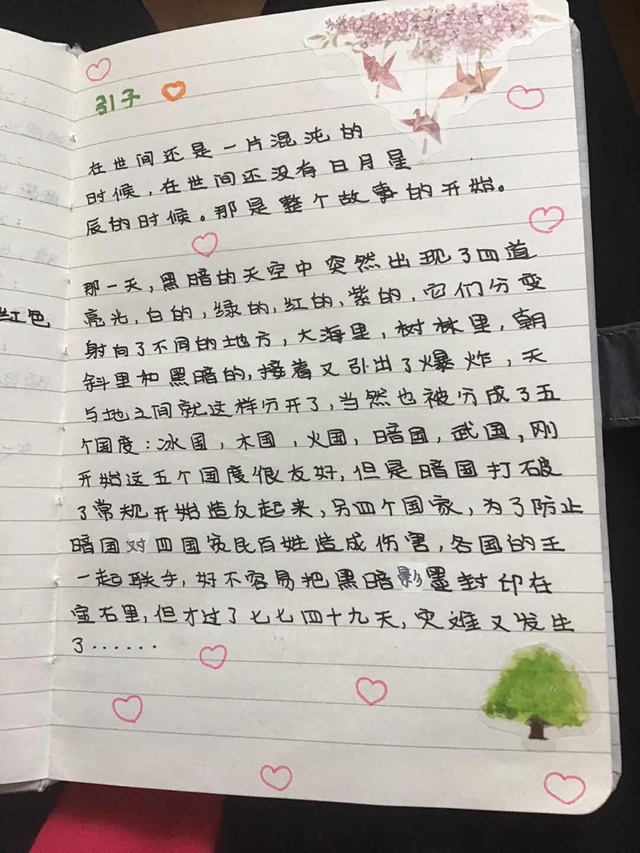 引子
在世间还是一片混沌的
时候，在世间还没有日月星
辰的时候。那是整个故事的开始。
那一天，黑暗的天空中突然出现了四道
亮光，白的，绿的，红的，紫的，它们分变
射向了不同的地方，大海里，树林里，朝
斜里和黑暗的，接着又引出了爆炸，天
与地之间就这样分开了，当然也被分成了五
个国度：冰国，木国，火国，暗国，武国，刚
开始这五个国度很友好，但是暗国打破
了常规开始造反起来，另四个国家，为了防止
暗国对四国家民百姓造成伤害，各国的王
一起联手，好不容易把黑暗影墨封印在
宝石里，但才过了七七四十九天，灾难又发生
了······
红色